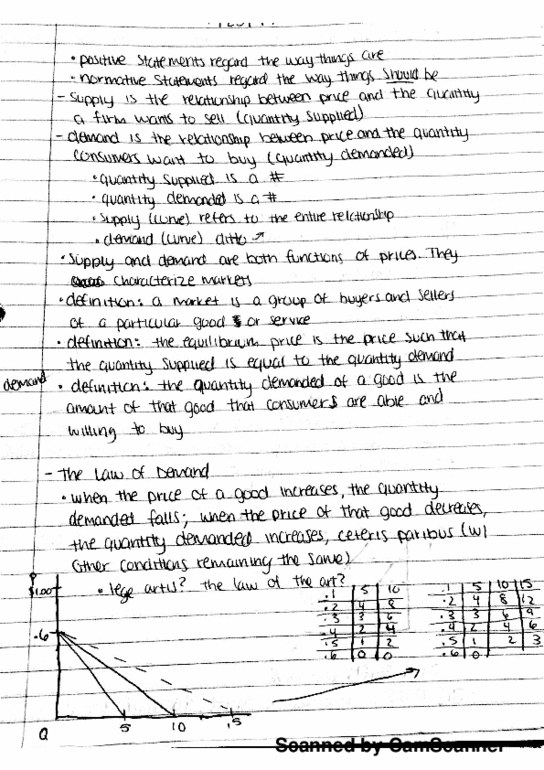 • positive statements regard the way things are
- normative statements regard the way things should be
- Supply is the relationship between price and the quantity
a firm wants to sell (quantity supplied)
- demand is the relationship between price and the quantity
consumers want to buy (quantity demanded)
• quantity supplied is a #
• quantity demanded is a #
• supply (curve) refers to the entire relationship
• demand (curve) ditto ↗
• Supply and demand are both functions of prices. They
characterize markets
• definition: a market is a group of buyers and sellers
of a particular good or service
• definition: the equilibrium price is the price such that
the quantity supplied is equal to the quantity demand
demand • definition: the quantity demanded of a good is the
amount of that good that consumers are able and
willing to buy
- The Law of Demand
• when the price of a good increases, the quantity
demanded falls; when the price of that good decreases,
the quantity demanded increases, ceteris paribus (w/
other conditions remaining the same)
• lege artis? the law of the art?
P
$1.00
.6
Q 5 10 15
.1 5 10
.2 4 8
.3 3 6
.4 2 4
.5 1 2
.6 0 0
.1 5 10 15
.2 4 8 12
.3 3 6 9
.4 2 4 6
.5 1 2 3
.6 0
Scanned by CamScanner